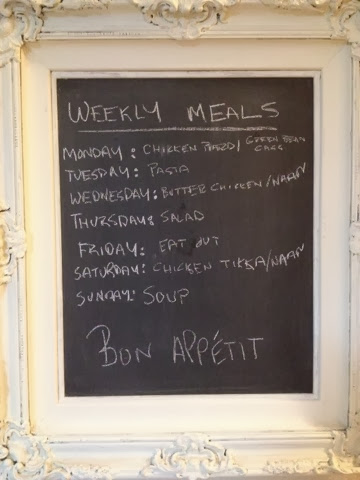 WEEKLY MEALS
MONDAY: CHICKEN / GREEN BEAN
TUESDAY: PASTA
WEDNESDAY: BUTTER CHICKEN/NAAN
THURSDAY: SALAD
FRIDAY: EAT OUT
SATURDAY: CHICKEN TIKKA/NAAN
SUNDAY: SOUP
BON APPÉTIT